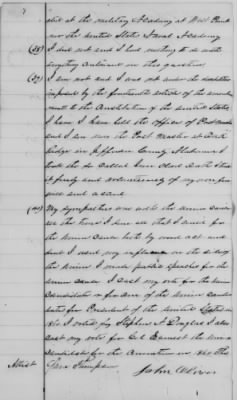 dit at the military Academy at West Point
nor the United States Naval Academy
(38) I did not and I had nothing to do with
anything contained in this question
(39) I am not and I was not under the disabilities
imposed by the fourteenth article of the amend
ment to the Constitution of the United States.
I have I have held the office of Post Master
and I am now the Post Master at
Ridge in Jefferson County Alabama I
took the so called Iron Clad Oath I took
it freely and voluntarily of my own free
will and accord
(40) My sympathies were with the Union cause
all the time I done all that I could for
the Union cause both by word act and
deed I used my influence on the side of
the Union I made public speeches for the
Union cause I cast my vote for the Union
Candidates in favor of the Union Candi
dates for President of the United States in
1860 I voted for Stephen A Douglas I also
cast my vote for Earnest the Union
Candidate for the Convention in 1861
Attest
John